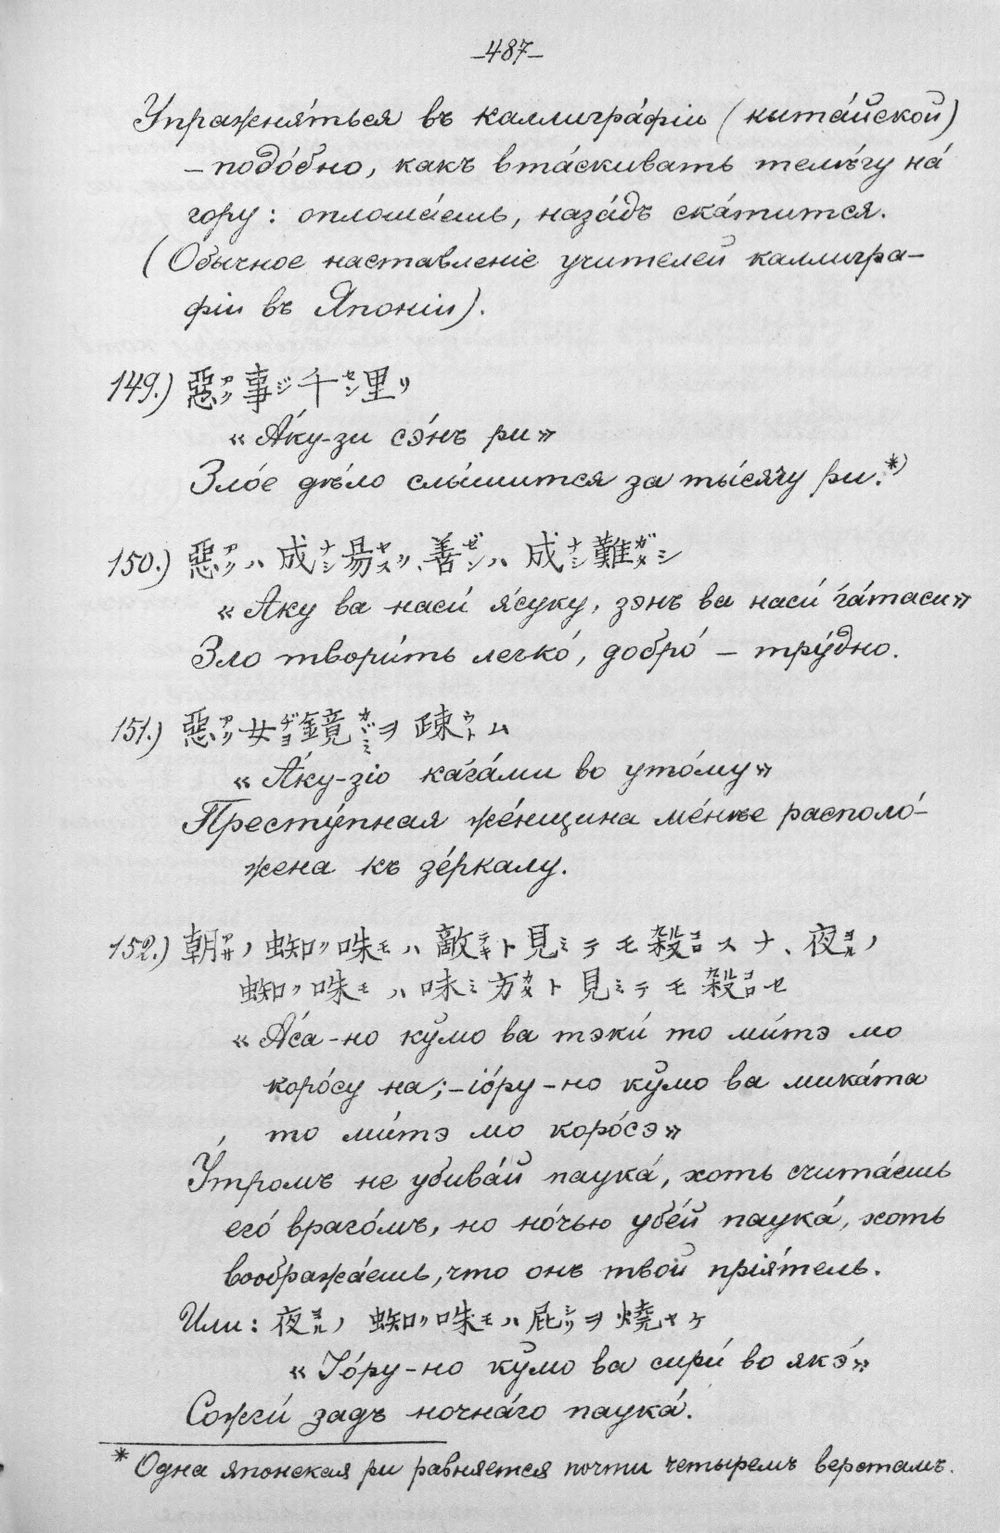 –487–
Упражня́ться въ каллигра́фіи (кита́йской)
– подо́бно, какъ вта́скивать теле́гу на́
гору: оплоша́ешь, наза́дъ ска́тится.
(Обычное наставленіе учителей каллигра–
фіи въ Японіи).
149.) 惡アク事ジ千セン里リ
«А́ку-зи сэ́нъ ри»
Зло́е дѣло слы́шится за ты́сячу ри.*)
150.) 惡アクハ 成ナシ昜ヤスク、善ゼンハ 成ナシ難ガタシ
«Аку ва наси́ я́суку, зэнъ ва наси́ га́таси»
Зло твори́ть легко́, добро́ – тру́дно.
151.) 惡アク女ヂヨ鏡カヾミヲ 疎ウトム
«А́ку-зіо кага́ми во уто́му»
Престу́пная же́нщина ме́нѣе располо́–
жена къ зе́ркалу.
152.) 朝アサノ 蜘ク咮モハ 敵テキト 見ミテモ 殺コロスナ、夜ヨルノ
蜘ク咮モハ 味ミ方カタト 見ミテモ 殺コロセ
«А́са-но ку́мо ва тэки́ то ми́тэ мо
коро́су на; – іо́ру-но ку́мо ва мика́та
то ми́тэ мо коро́сэ»
У́тромъ не убива́й паука́, хоть счита́ешь
его́ враго́мъ, но но́чью убе́й паука́, хоть
вообража́ешь, что онъ твой прія́тель.
Или: 夜ヨルノ 蜘ク咮モハ 屁シリヲ 燒ヤケ
«Іо́ру-но ку́мо ва сири́ во якэ́»
Сожги́ задъ ночна́го паука́.
* Одна японская ри равняется почти четыремъ верстамъ.